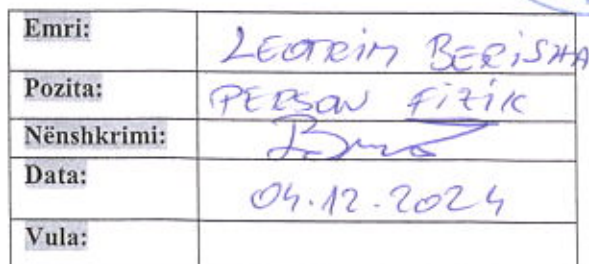 Emri: LEOTRIM BERISHA
Pozita: PERSON FIZIK
Nënshkrimi:
Data: 04.12.2024
Vula: